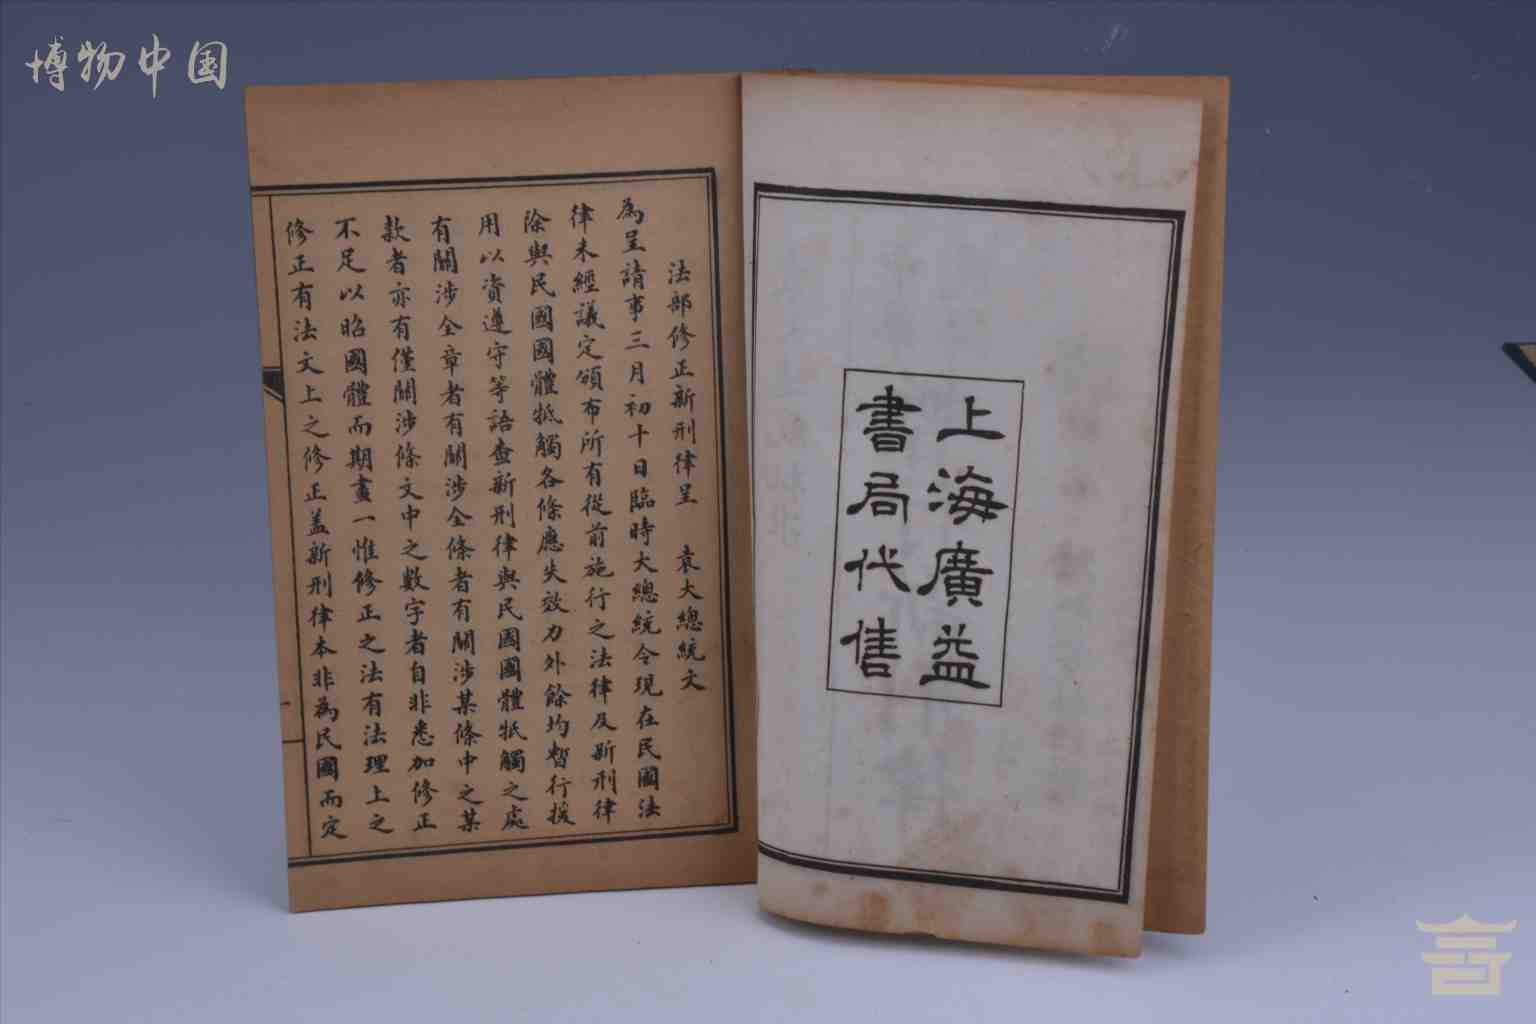 博物中国
上海廣益
書局代售
法部修正新刑律呈　袁大總統文
為呈請事三月初十日臨時大總統令現在民國法
律未經議定頒布所有從前施行之法律及新刑律
除與民國國體牴觸各條應失效力外餘均暫行援
用以資遵守等語查新刑律與民國國體牴觸之處
有關涉全章者有關涉全條者有關涉某條中之某
款者亦有僅關涉條文中之數字者自非悉加修正
不足以昭國體而期畫一惟修正之法有法理上之
修正有法文上之修正蓋新刑律本非為民國而定